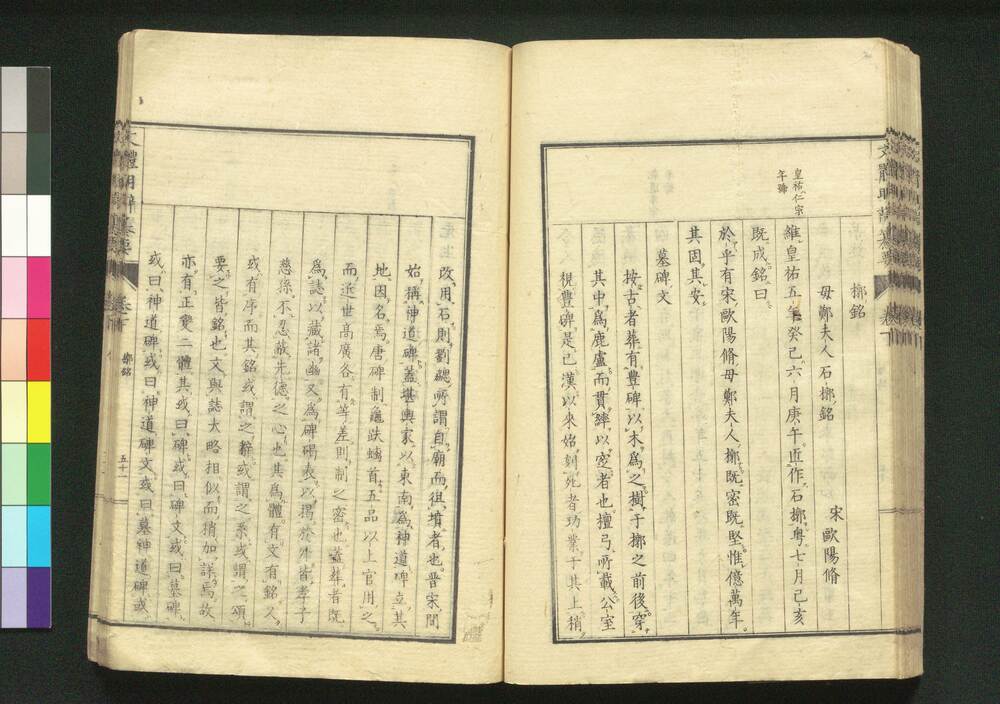 椁銘
母鄭夫人石椁銘
宋 歐陽脩
皇祐仁宗
年號
維皇祐五年癸巳六月庚午匠作石椁粤七月己亥
既成銘曰
於乎有宋歐陽脩母鄭夫人椁既密既堅惟億萬年
其固其安
墓碑文
按古者葬有豐碑以木為之樹于椁之前後穿
其中為鹿盧而貫繂以窆者也檀弓所載公室
視豐碑是已漢以來始刻死者功業于其上稍
改用石則劉勰所謂自廟而徂墳者也晉宋間
始稱神道碑蓋堪輿家以東南為神道碑立其
地因名焉唐碑制龜趺螭首五品以上官用之
而近世高廣各有等差則制之密也蓋葬者既
為誌以藏諸幽又為碑碣表以揭於外皆孝子
慈孫不忍蔽先德之心也其為體有文有銘又
或有序而其銘或謂之辭或謂之系或謂之頌
要之皆銘也文與誌大略相似而稍加詳焉故
亦有正變二體其或曰碑或曰碑文或曰墓碑
或曰神道碑或曰神道碑文或曰墓神道碑或
文體明辨纂要
卷下
椁銘
五十一